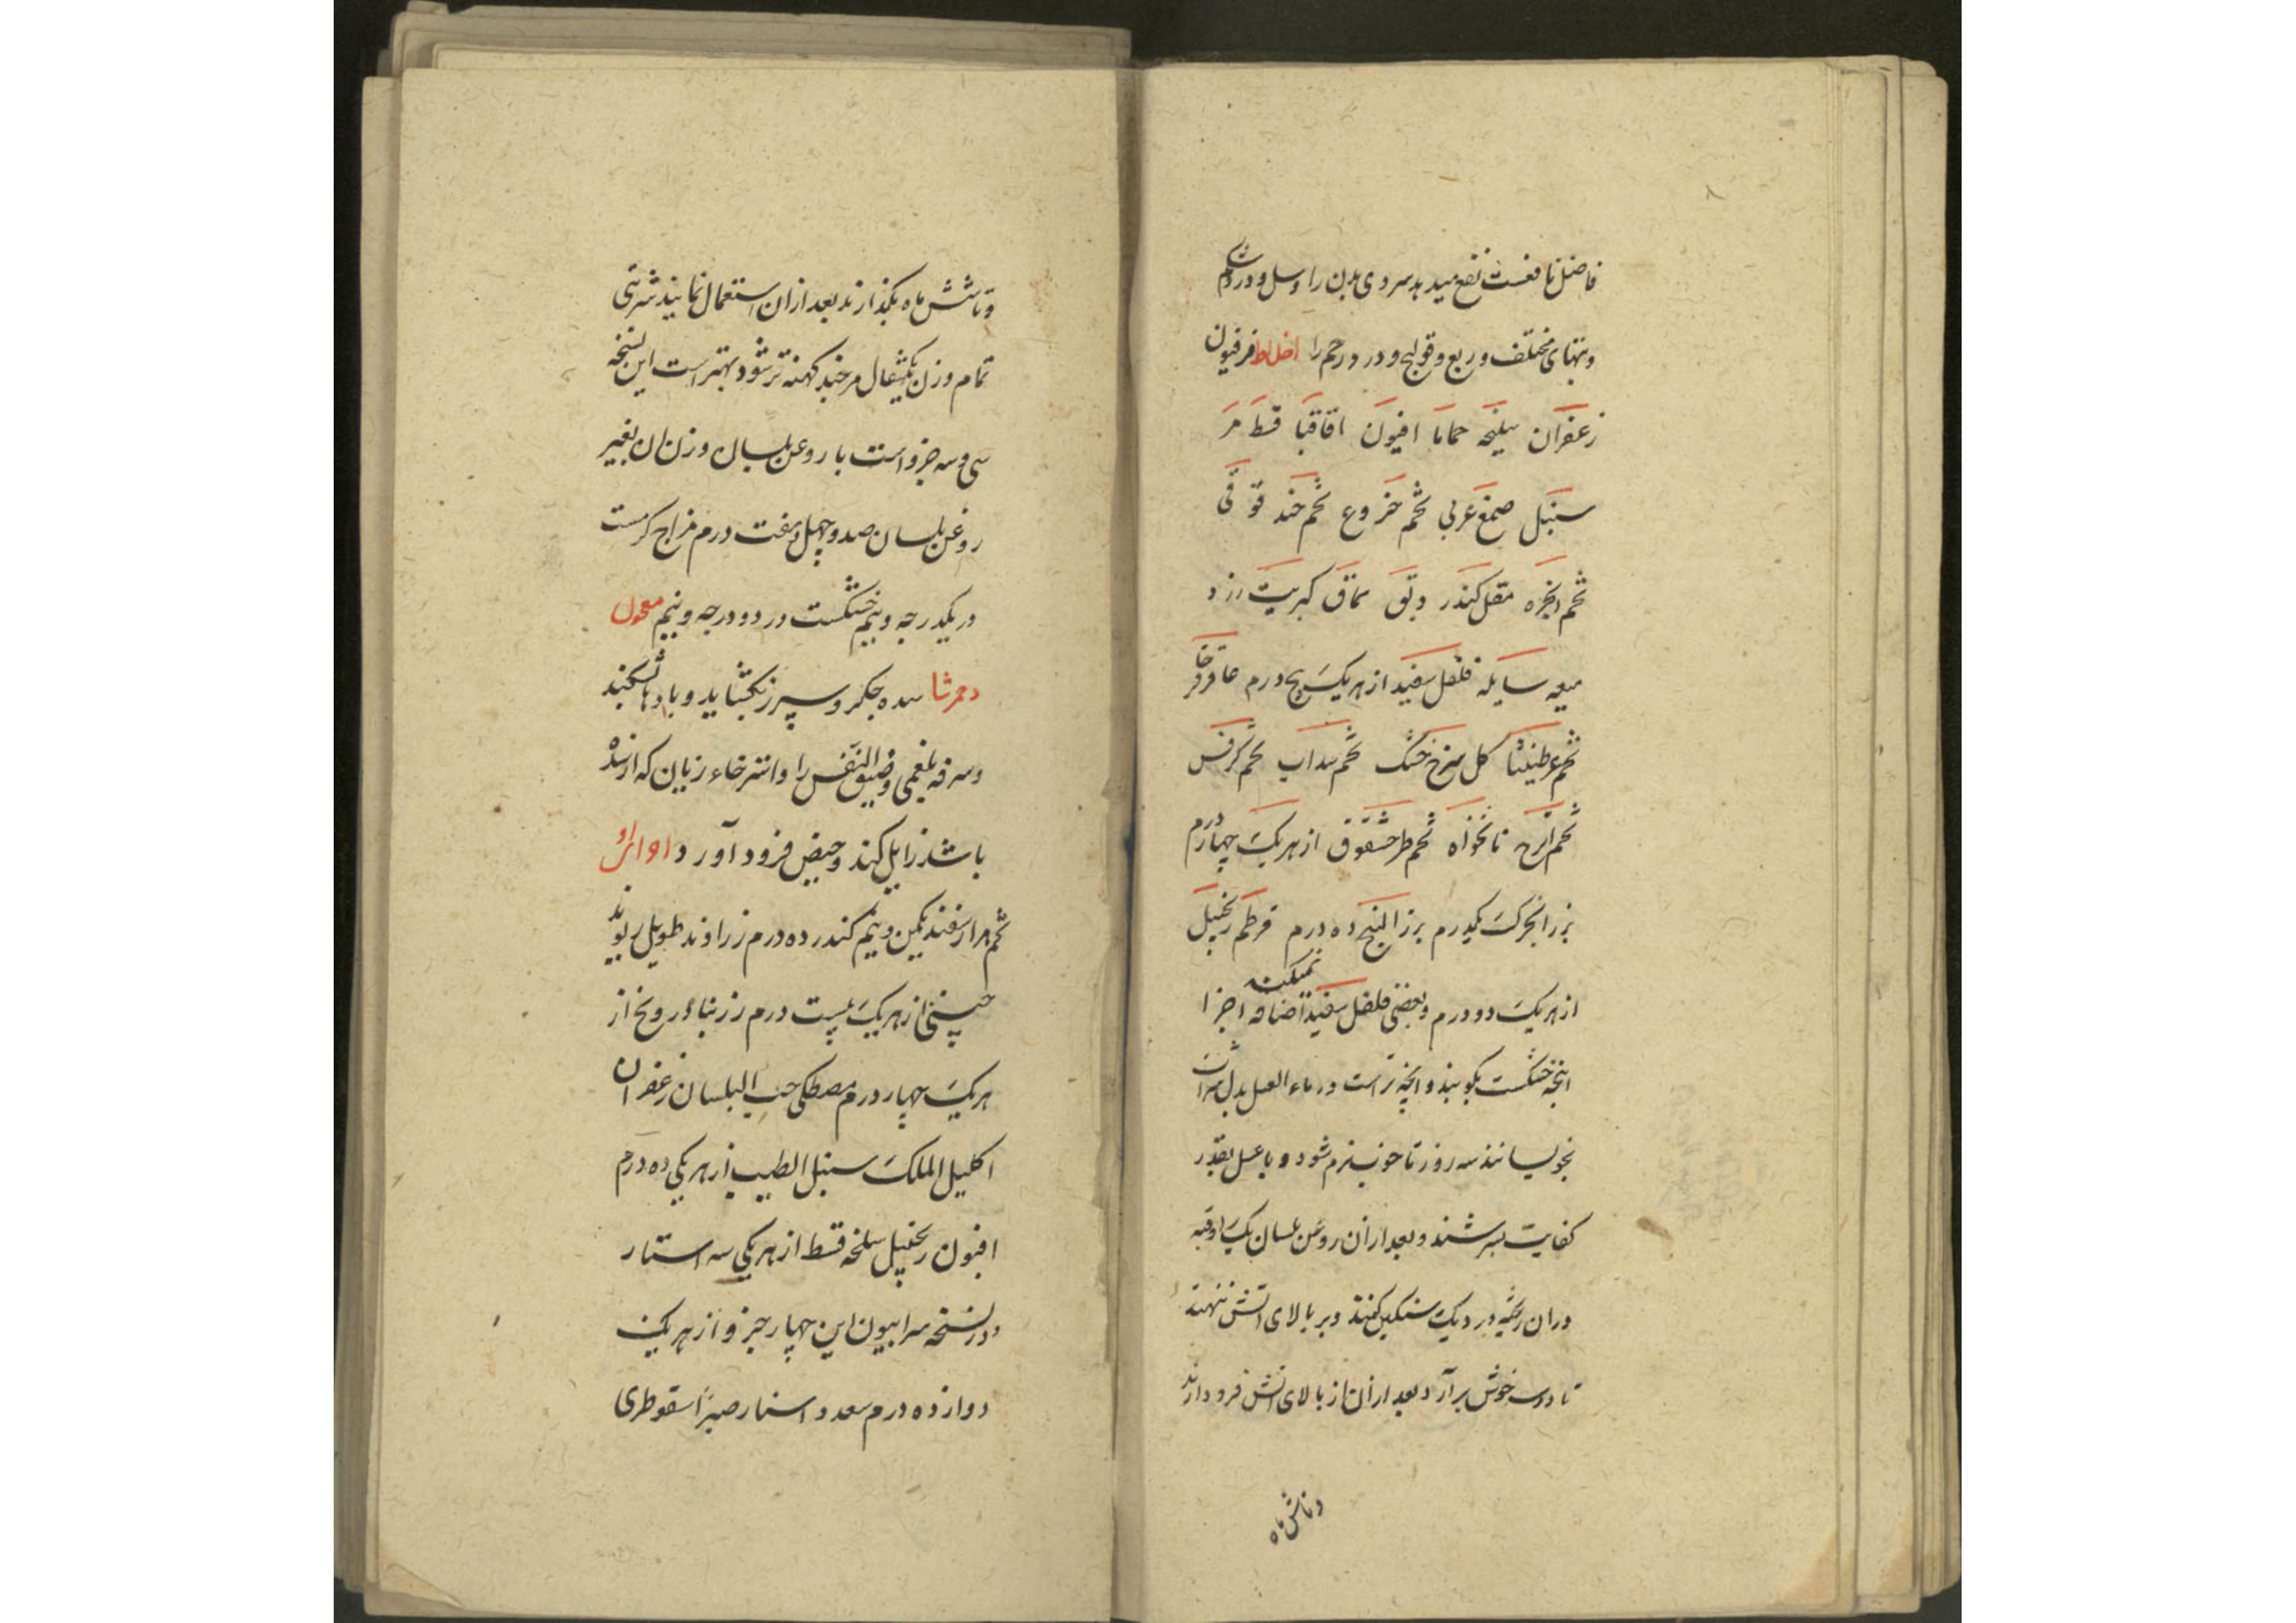 فاضل نافعست نفع میدهد سردی بدن را و سل و درد شکم
وتبهای مختلف و ربع و قولنج و درد رحم را اخلاط فرفیون
زعفران سلیخه حماما افیون اقاقیا قسط مر
سنبل صمغ عربی تخم خروع تخم حند قوقی
تخم انجره مقل کندر دبق سماق کبریت زرد
میعه سایله فلفل سفید از هریک پنج درم عاقرقرحا
تخم عرطنیثا کل سرخ خشک تخم سداب تخم کرفس
تخم اترج نانخواه تخم طرخشقوق از هریک چهار درم
بزر انجرک یکدرم بزر البنج ده درم قرطم زنجبیل
از هریک دو درم و بعضی فلفل سفید اضافه نمیکنند اجزا
انچه خشکست بکوبند و انچه تر است در ماء العسل بدل شراب
بخویسانند سه روز تا خوب نرم شود و با عسل بقدر
کفایت بسرشند و بعد ازان روغن بلسان یک اوقیه
دران ریخته در دیک سنکین کنند و بر بالای اتش نهند
تا دو سه جوش برآرد بعد ازان از بالای اتش فرود ارند
و تا شش ماه
و تا شش ماه بکذارند بعد ازان استعمال نمایند شربتی
تمام وزن یکمثقال هرچند کهنه تر شود بهتر است این نسخه
سی و سه جزو است با روغن بلسان وزن ان بغیر
روغن بلسان صد و چهل و هفت درم مزاج کرمست
در یکدرجه و نیم خشکست در دو درجه و نیم معجون
دحمرثا سده جکر و سپرز بکشاید و بادها بشکند
و سرفه بلغمی و ضیق النفس را و استرخاء زبان که از سده
باشد زایل کند و حیض فرود آورد
تخم هزار سفند یکمن و نیم کندر ده درم زراوند طویل ریوند
چینی از هریک بیست درم زرنباد درونج از
هریک چهار درم مصطکی حب البلسان زعفران
اکلیل الملک سنبل الطیب از هریکی ده درم
افیون زنجبیل سلیخه قسط از هریکی سه استار
و در نسخه سرابیون این چهار جزو از هریک
دوازده درم سعد دو استار صبر اسقوطری